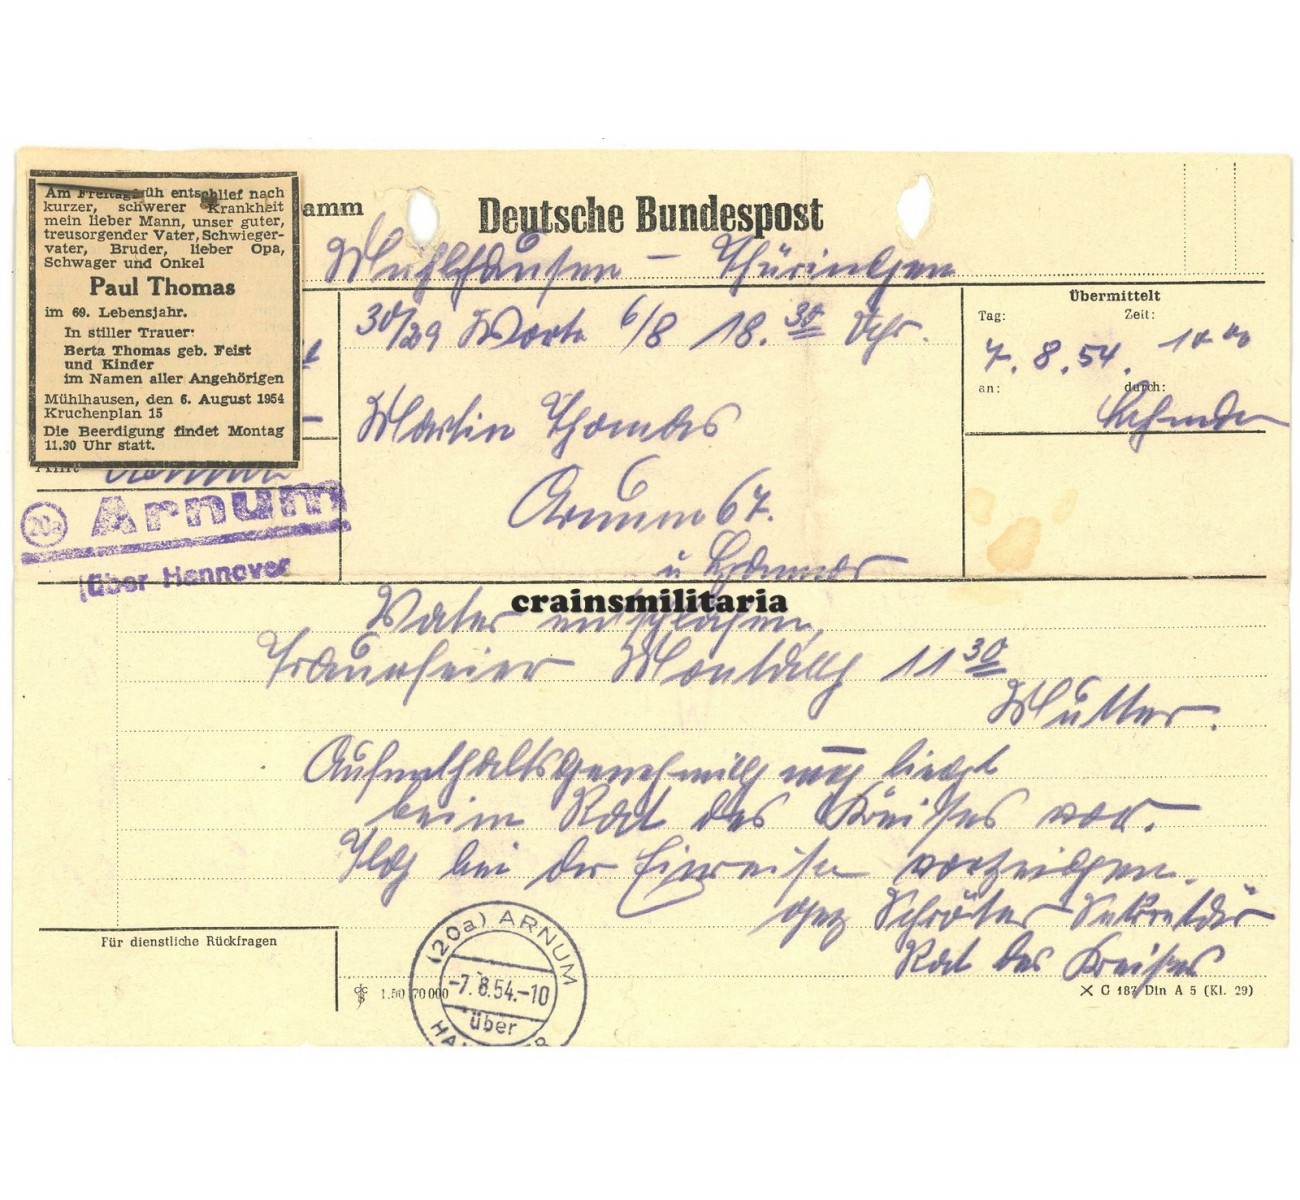 Am Freitagfrüh entschlief nach
kurzer, schwerer Krankheit
mein lieber Mann, unser guter,
treusorgender Vater, Schwieger-
vater, Bruder, lieber Opa,
Schwager und Onkel
Paul Thomas
im 69. Lebensjahr.
In stiller Trauer:
Berta Thomas geb. Feist
und Kinder
im Namen aller Angehörigen
Mühlhausen, den 6. August 1954
Kruchenplan 15
Die Beerdigung findet Montag
11.30 Uhr statt.
amm
Deutsche Bundespost
Mühlhausen - Thüringen
30/29 Worte 6/8 18.30 Uhr.
Übermittelt
Tag: Zeit:
7.8.54. 10 00
an: durch:
Martin Thomas
Arnum 67.
ü Hannover
20a Arnum
(über Hannover
crainsmilitaria
Vater entschlafen,
Trauerfeier Montag 11 30
Mutter.
Aufenthaltsgenehmig ung liegt
beim Rat des Kreises vor.
Tlg bei der Einreise vorzeigen.
gez Schröter Sekretär
Rat des Kreises
Für dienstliche Rückfragen
(20a) ARNUM
-7.8.54.-10
über
HANNOVER
1.50 70 000
C 187 Din A 5 (Kl. 29)